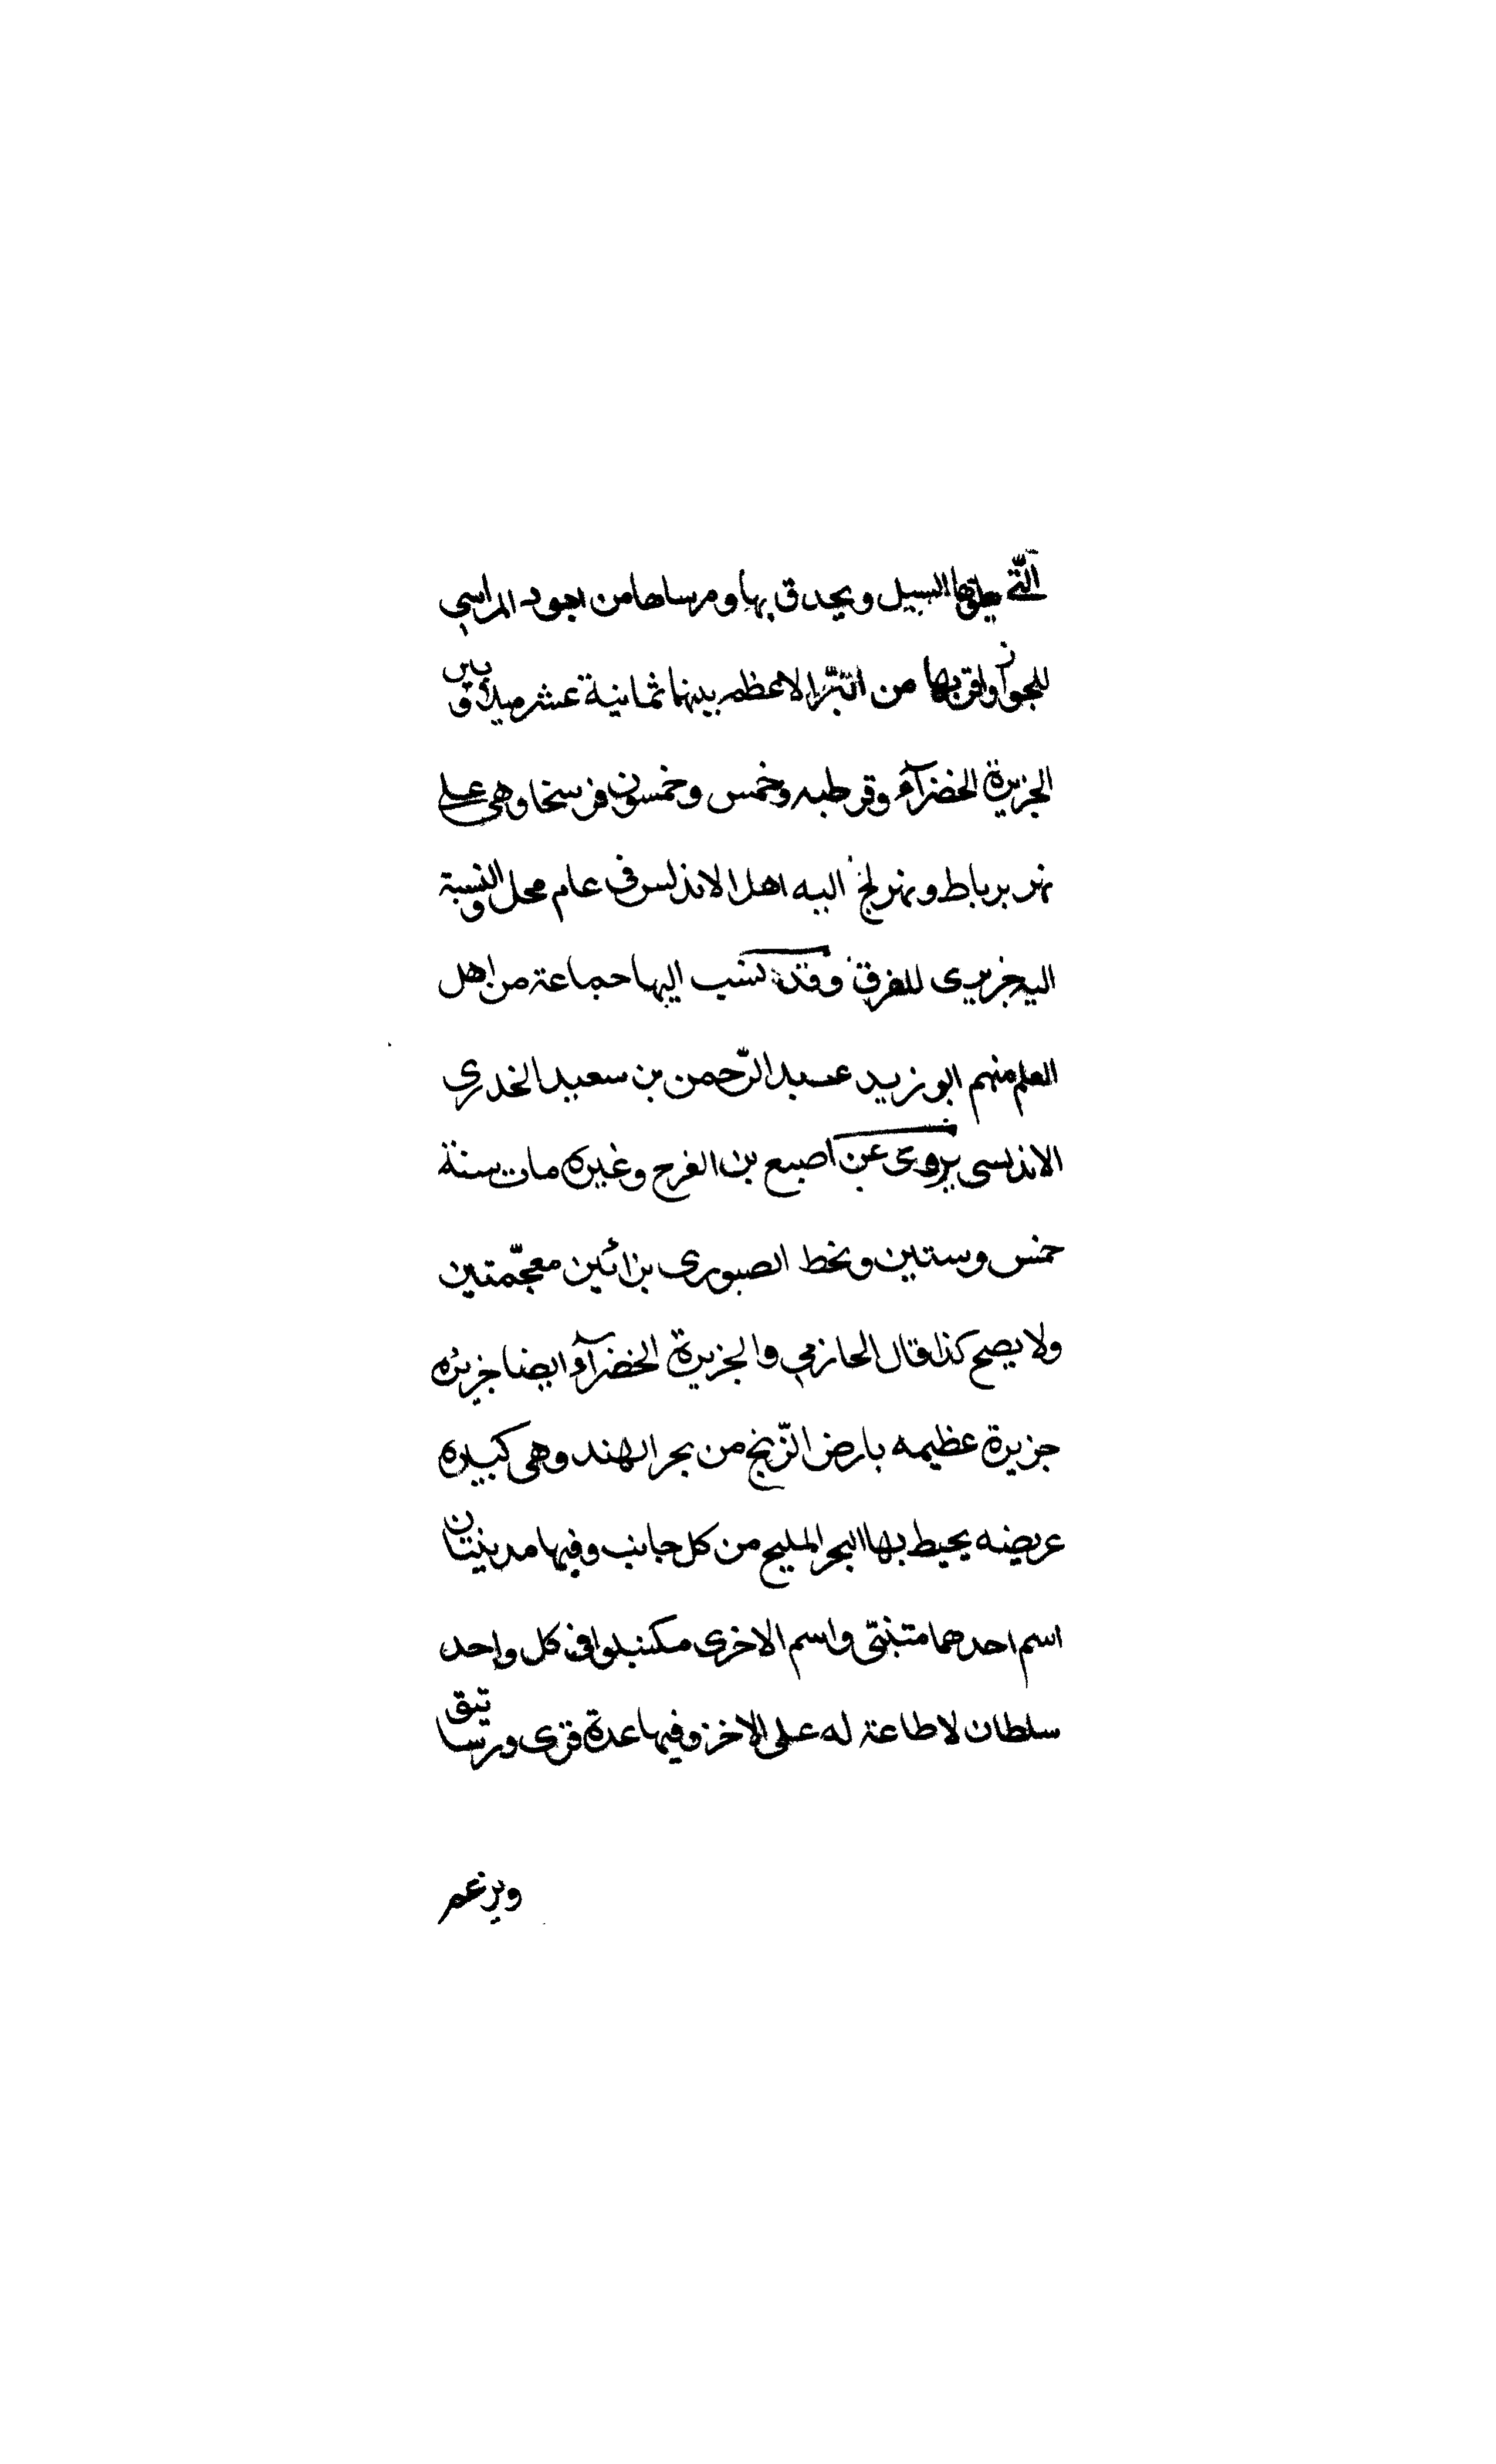 الّتى يلقيها السيل ويحدق بها ومرساها من اجود المراسى
للجواز واقربها من البّر الاعظم بينهما ثمانية عشر ميلا وبين
الجزيرة الخضرآء وقرطبه وخمس وخمسون فرسخا وهى على
نهر برباط ونهر لج اليه اهل الاندلس فى عام محل والنسبة
اليه جزيرى للفرق وقد نسب اليها جماعة من اهل
العلم منهم ابو زيد عبد الرّحمن بن سعيد الخدرى
الاندلسى يروى عن اصبع بن الفرج وغيره مات سنة
خمس وستين وبخط الصورى بزائين معجّمتين
ولا يصح كذا قال الحازمى والجزيرة الخضرآء ايضا جزيره
جزيرة عظيمه بارض الزّنج من بحر الهند وهى كبيره
عريضه يحيط بها البحر المليح من كل جانب وفيها مدينتان
اسم احدهما متنبّى واسم الاخرى مكنبلوا فى كل واحد
سلطان لا طاعة له على الاخر وفيها عدة قرى ورساتيق
ويزعم